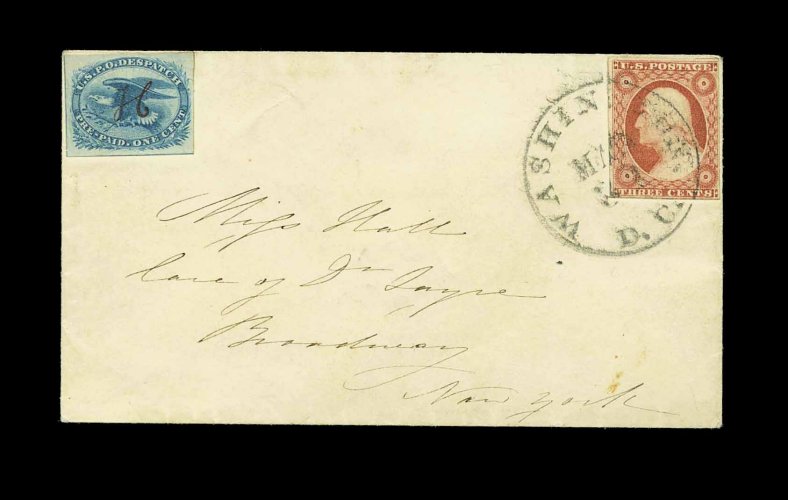 U.S.P.O. DESPATCH
PRE-PAID. ONE CENT
U.S. POSTAGE
THREE CENTS
WASHIN
D.C.
Miss Hall
Care of Dr Sayre
Broadway
New York